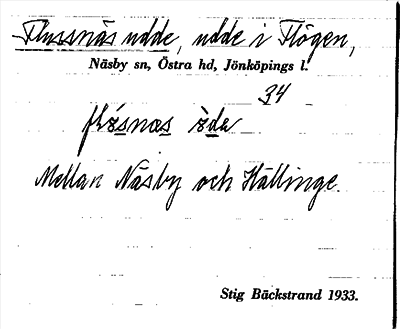 Flussnäs udde, udde i Flögen,
Näsby sn, Östra hd, Jönköpings l.
34
Mellan Näsby och Hällinge.
Stig Bäckstrand 1933.